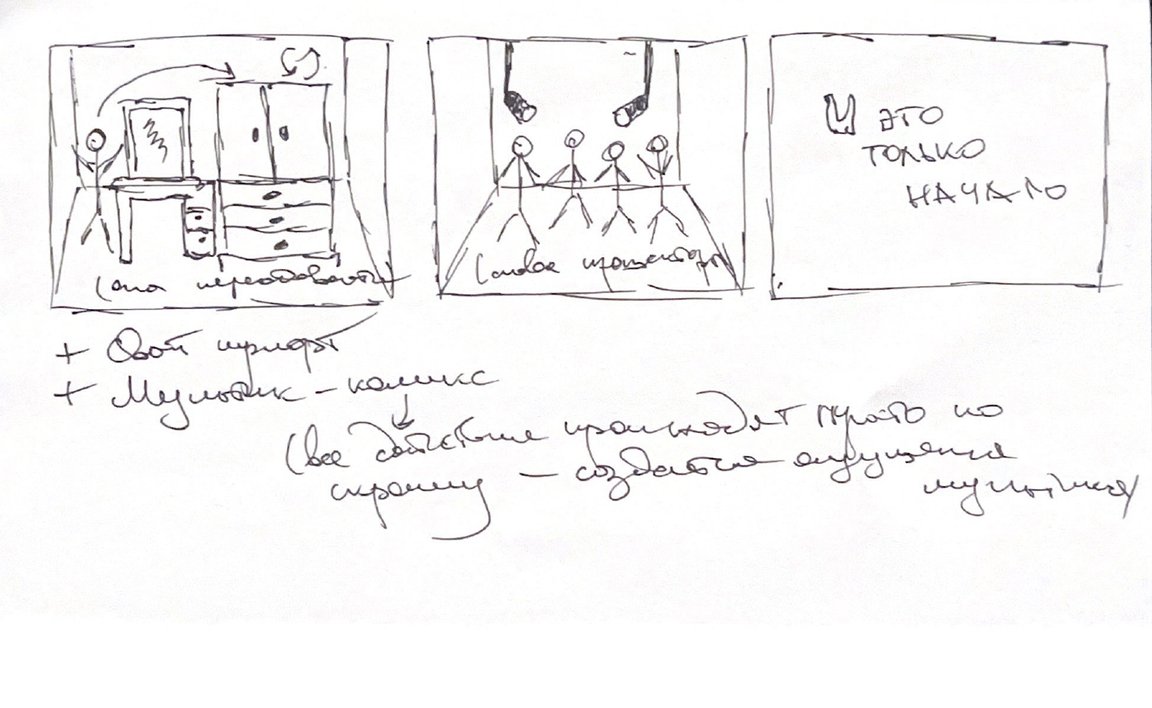 (она переодевается)
(новые прожекторы)
И ЭТО
ТОЛЬКО
НАЧАЛО
+ Свой шрифт
+ Мультик – комикс
(все действия происходят просто по
скрапингу – создаётся ощущение
мультика)